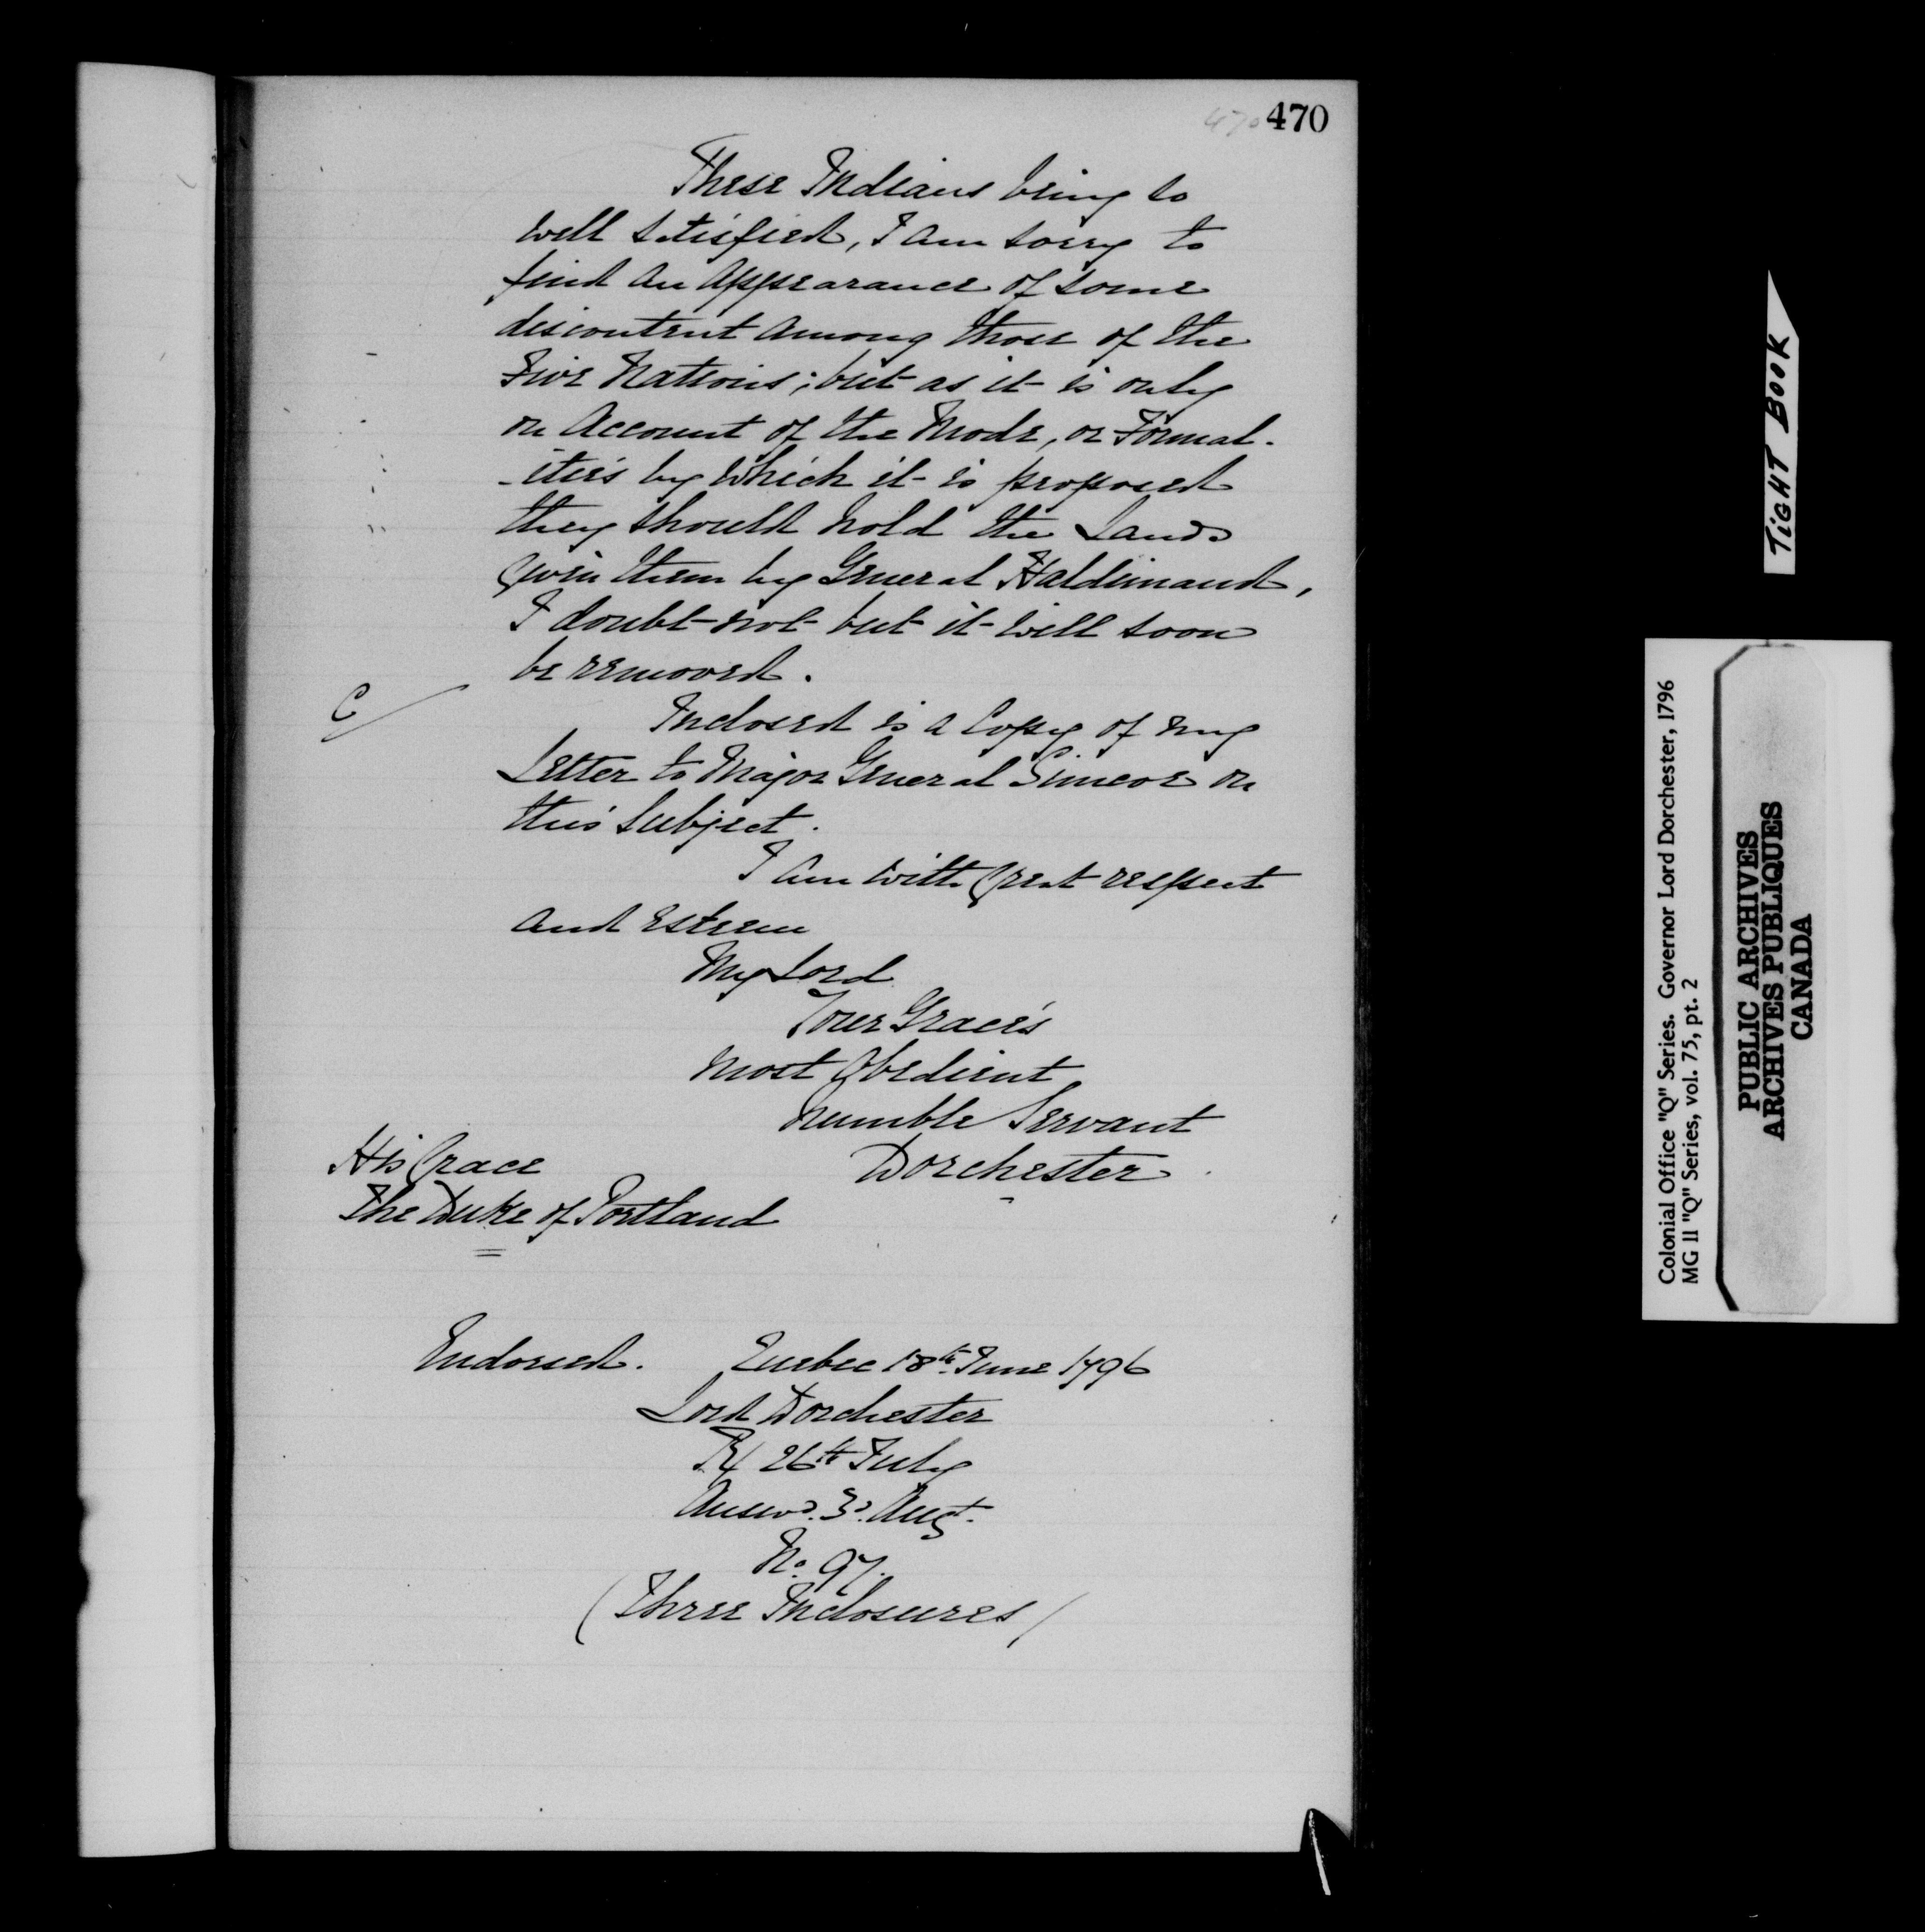 470 470
These Indians being so
well satisfied, I am sorry to
find an appearance of some
discontent among those of the
Five Nations; but as it is only
on Account of the Mode, or Formal-
-ities by which it is proposed
they should hold the Lands
given them by General Haldimand,
I doubt not but it will soon
be removed.
C/
Inclosed is a Copy of my
Letter to Major General Simcoe on
this Subject.
I am with great respect
and Esteem
My Lord
Your Grace's
most Obedient
humble Servant
Dorchester
His Grace
The Duke of Portland
Endorsed. Quebec 18th June 1796
Lord Dorchester
R/ 26th July
Answd. 3d. Augt.
No. 97.
(Three Inclosures)
TIGHT BOOK
Colonial Office "Q" Series. Governor Lord Dorchester, 1796
MG 11 "Q" Series, vol. 75, pt. 2
PUBLIC ARCHIVES
ARCHIVES PUBLIQUES
CANADA